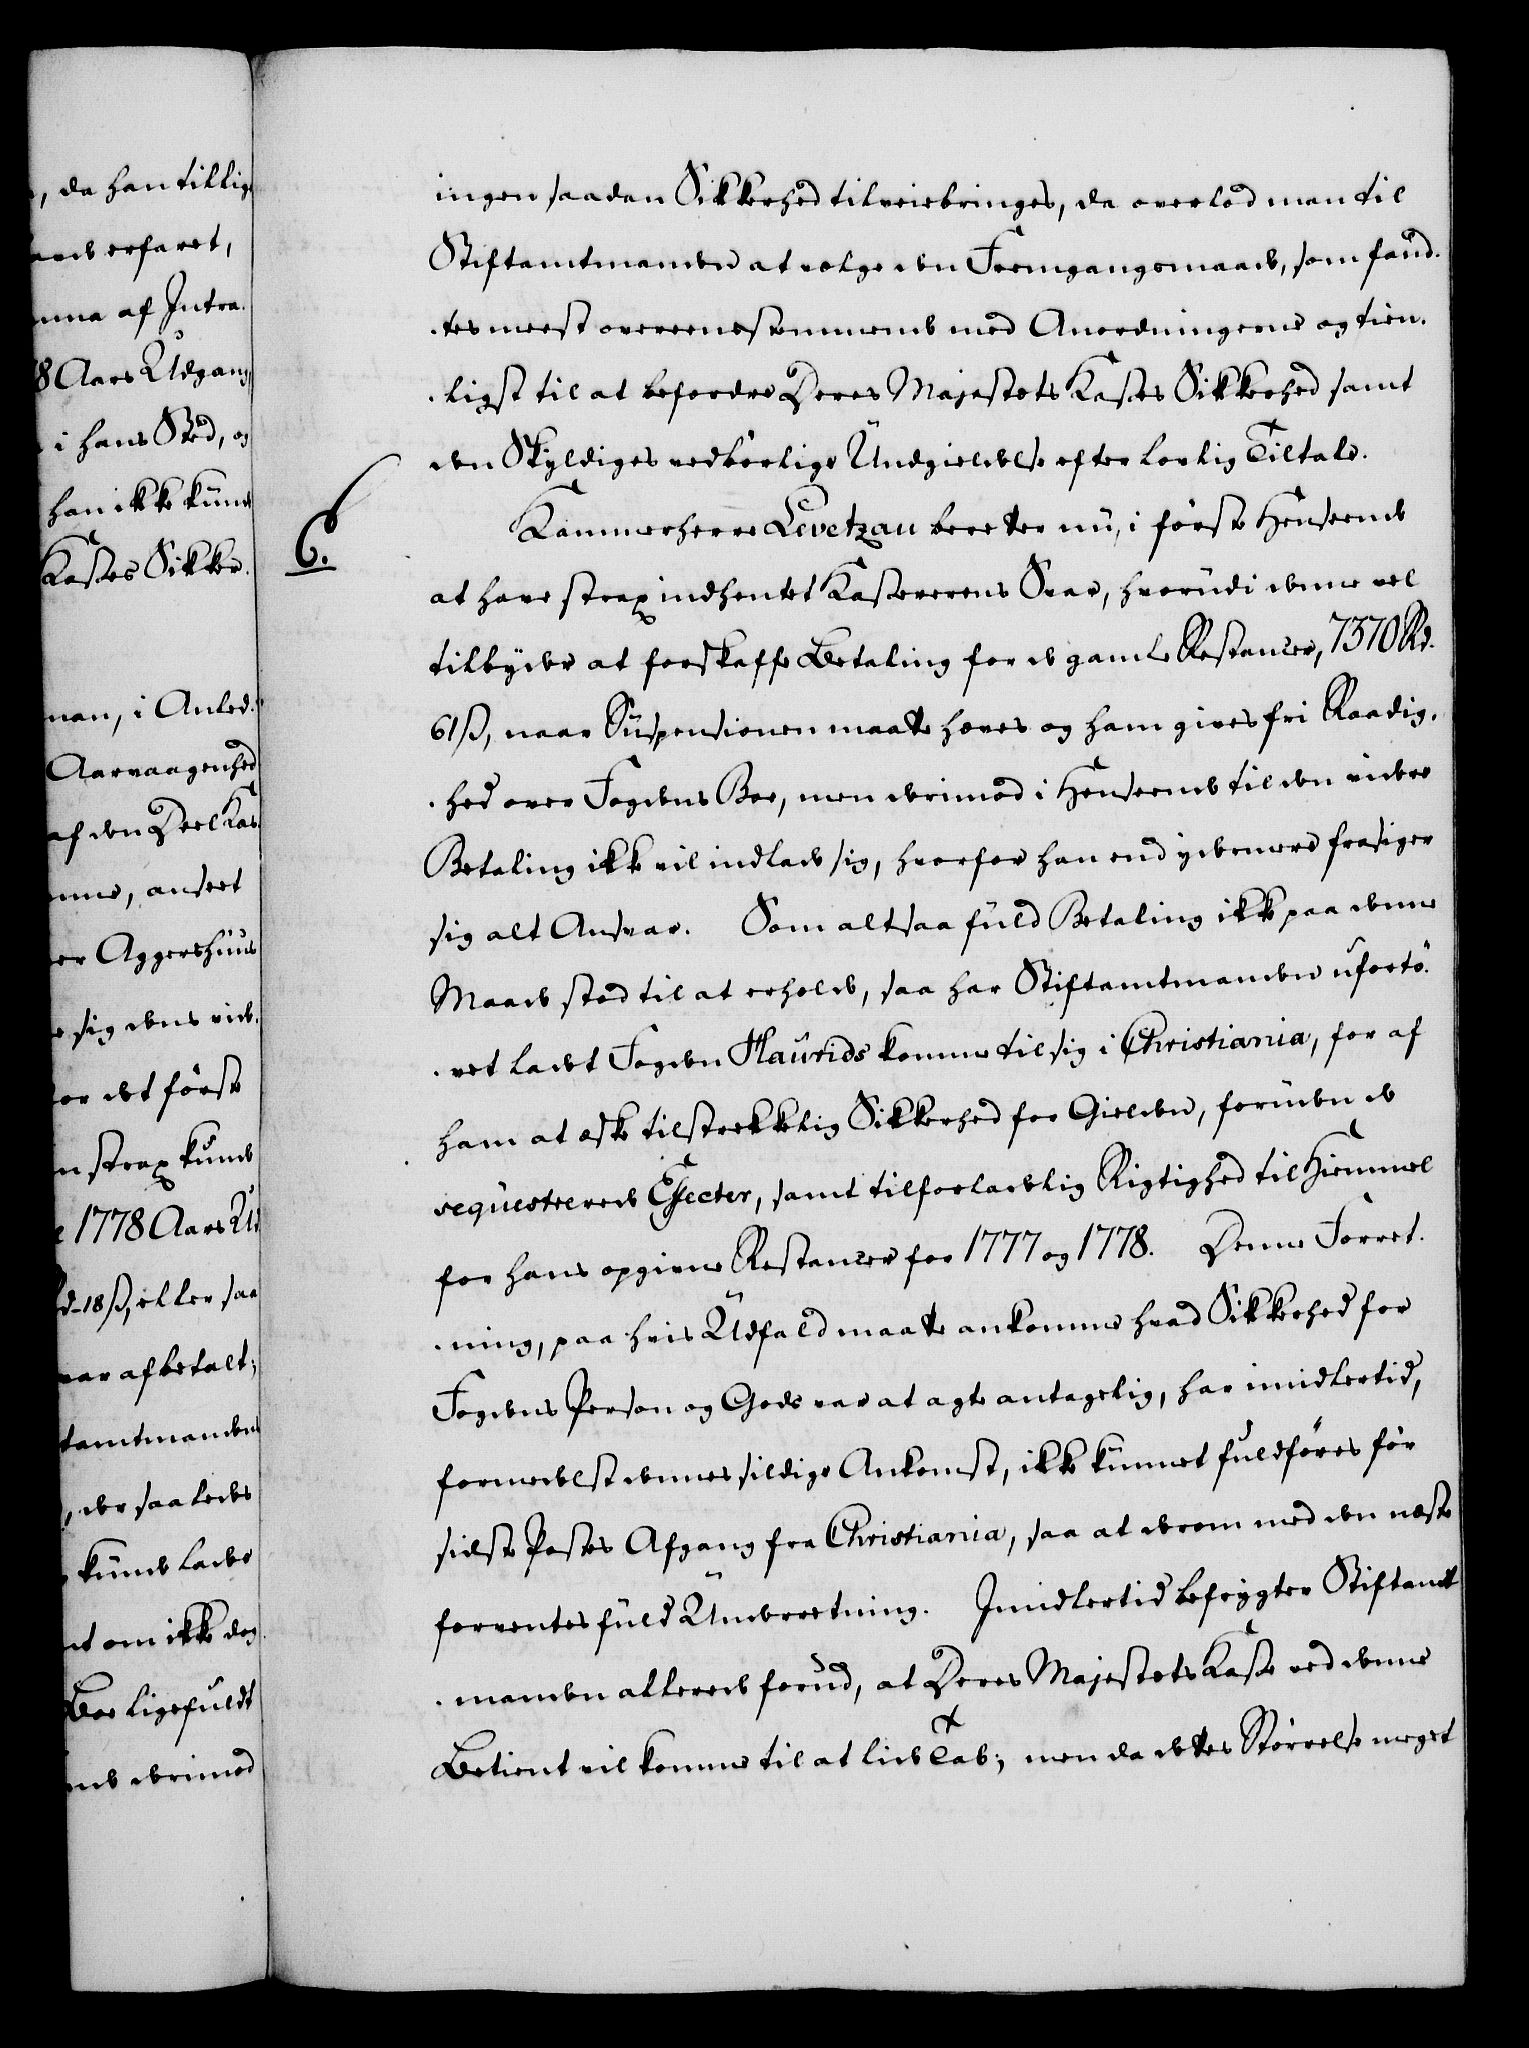 , da han tillige
erfaret,
af Intra-
8 Aars Udgang,
i hans Sted, og
han ikke kunde
Kasses Sikker-
man, i Anled-
Aarvaagenhed
af den Deel Kas-
anseet
er Aggershuus
sig dens vid-
for det første
strax kunde
1778 Aars Ud
18 ß, eller saa
var afbetalt;
tamtmandens
, der saaledes
kunde lades
om ikke dog
Boe ligefuldt
derimod
ingen saadan Sikkerhed tilveiebringes, da overlod man til
Stiftamtmanden at vælge den Fremgangsmaade, som fand-
-tes meest overeensstemmende med Anordningerne og tien-
-ligst til at befordre Deres Majestets Kasses Sikkerhed samt
den Skyldiges vedbørlige Undgieldelse efter lovlig Tiltale.
6.
Kammerherre Levetzau beretter nu, i første Henseende
at have strax indhentet Kassererens Svar, hvorudi denne vel
tilbyder at forskaffe Betaling for de gamle Restancer, 7370 Rd.
61 ß, naar Suspensionen maatte hæves og ham gives fri Raadig-
-hed over Fogdens Boe, men derimod i Henseende til den videre
Betaling ikke vil indlade sig, hvorfor han end ydermere frasiger
sig alt Ansvar. Som altsaa fuld Betaling ikke paa denne
Maade stod til at erholde, saa har Stiftamtmanden ufortø-
-vet ladet Fogden Haurids komme til sig i Christiania, for af
ham at æske tilstrækkelig Sikkerhed for Gielden, foruden de
sequestrerede Effecter, samt tilforladelig Rigtighed til Hiemmel
for hans opgivne Restancer for 1777 og 1778. Denne Forret-
-ning, paa hvis Udfald maatte ankomme hvad Sikkerhed for
Fogdens Person og Gods var at agte antagelig, har imidlertid,
formedelst dennes sildige Ankomst, ikke kunnet fuldføres før
sidste Postes Afgang fra Christiania, saa at derom med den næste
forventes fuld Underretning. Imidlertid befrygter Stiftamt-
-manden allerede forud, at Deres Majestets Kasse ved denne
Betient vil komme til at lide Tab; men da dettes Størrelse meget